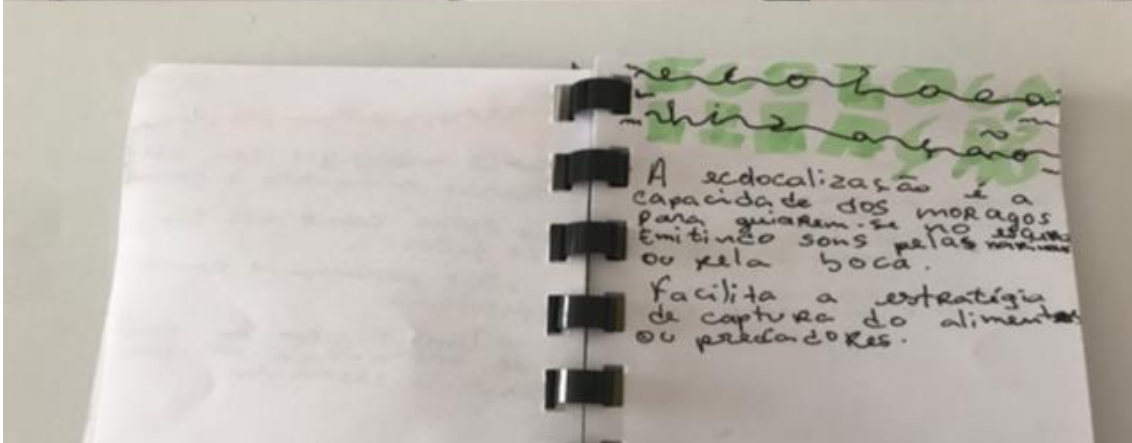 ecoloca
lização
A ecolocalização é a
capacidade dos morcagos
para guiarem-se no escuro
Emitindo sons pelas narinas
ou pela boca.
Facilita a estratégia
de captura do alimentos
ou predadores.